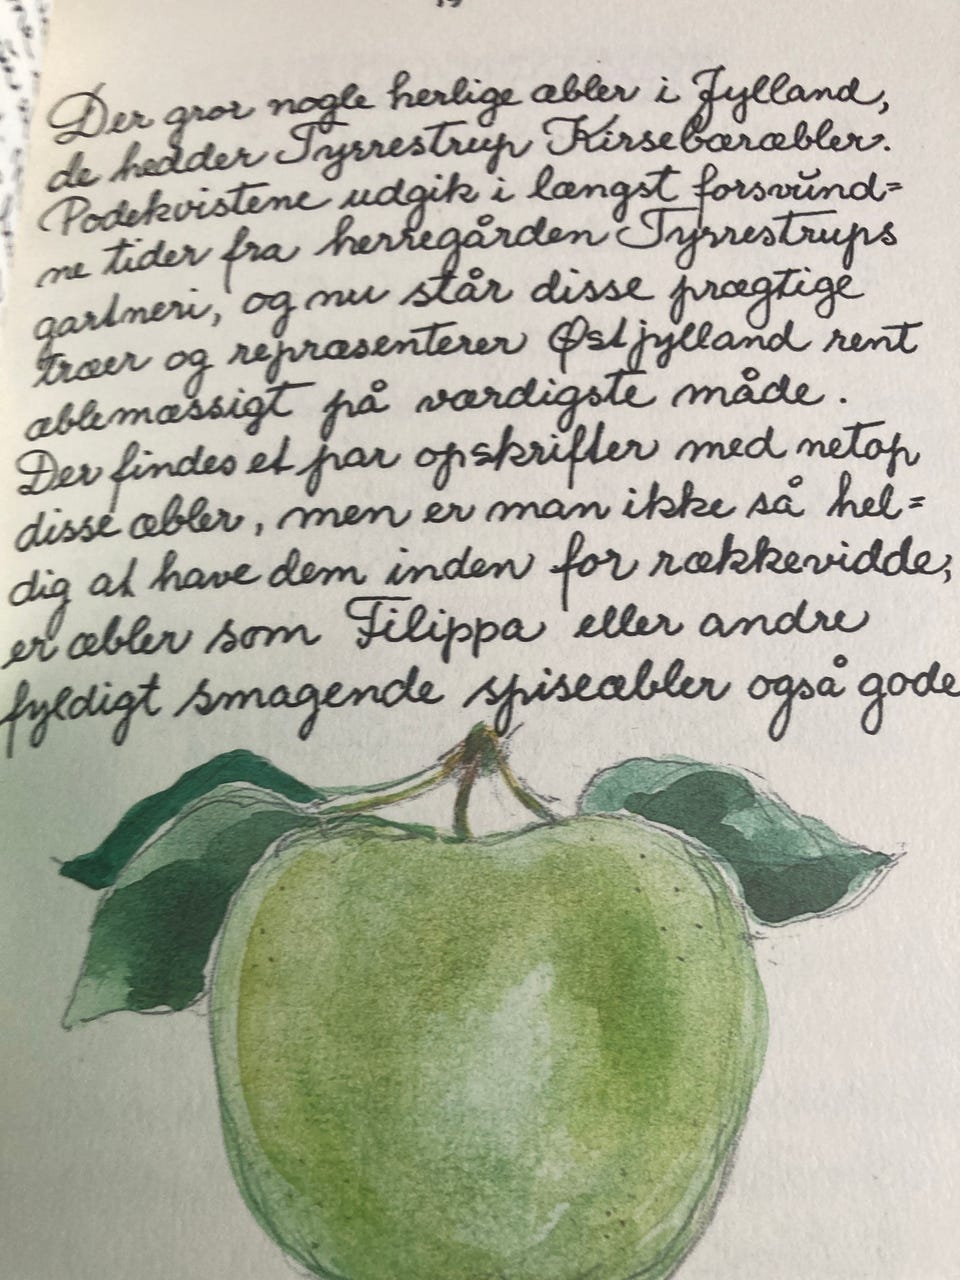 Der gror nogle herlige æbler i Jylland,
de hedder Tyrrestrup Kirsebæræbler.
Podekvistene udgik i længst forsvund=
ne tider fra herregården Tyrrestrups
gartneri, og nu står disse prægtige
træer og repræsenterer Østjylland rent
æblemæssigt på værdigste måde.
Der findes et par opskrifter med netop
disse æbler, men er man ikke så hel=
dig at have dem inden for rækkevidde,
er æbler som Filippa eller andre
fyldigt smagende spiseæbler også gode